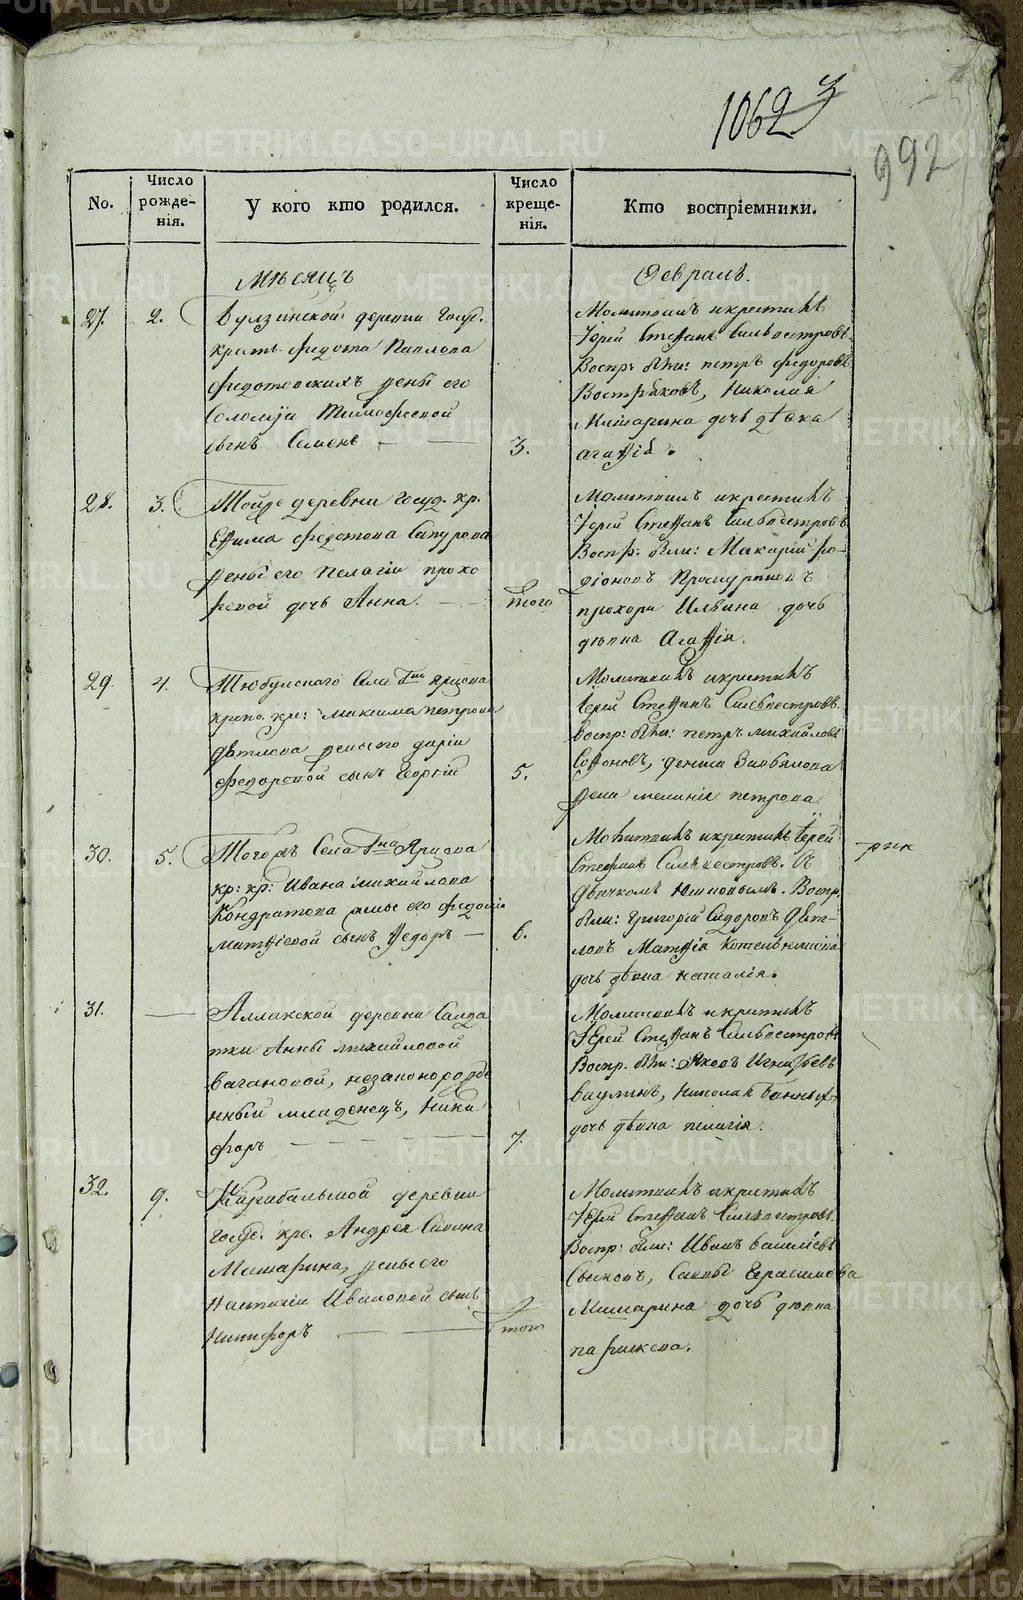 1062
3
992
No.
Число рожденія.
У кого кто родился.
Число крещенія.
Кто воспріемники.
Мѣсяцъ
Февраль.
27.
2.
Булзинской деревни госуд.
крест. Федота Павлова
Федотовскихъ жены его
Соломіи Тимофеевой
сынъ Семенъ
3.
Молитвилъ икрестилъ
Іерей Стефанъ Сильвестровъ.
Воспр: были: петръ федоровъ
Востряковъ, Николая
Мишарина дочь дѣвка
агафія.
28.
3.
Тойже деревни госуд. кр.
Ефима Федотова Сапурова
жены его Пелагіи прохо
ровой дочь Анна.
того
Молитвилъ икрестилъ
Іерей Стефанъ Сильвестровъ
Воспр. были: Макарій Ро-
діоновъ
прохора Ильина дочь
девка Агафія.
29.
4.
Тюбукского Села Гна Ярцова
крепо. кре: Максима петрова
дѣтлова жены его даріи
Федоровой сынъ Георгій
5.
Молитвилъ икрестилъ
іерей Стефанъ Сильвестровъ.
воспр: были: петръ михайловъ
Софоновъ, дениса Завьялова
жена меланія петрова.
30.
5.
Тогожъ Села Гна Ярцова
кр: кр: Ивана михайлова
Кондратова жены его федосіи
матфіевой сынъ Федоръ
6.
Молитвилъ икрестилъ іерей
Стефанъ Сильвестровъ. Съ
дьячкомъ Воспр.
были: григорій Сидоровъ дѣт-
ловъ Матфія Котельникова
дочь дѣвка наталія.
31.
Аллакской деревни Салда
тки Анны михайловой
вагановой, незаконорожде
нный младенецъ, Ники
форъ
7.
Молитвилъ икрестилъ
Іерей Стефанъ Сильвестровъ
Воспр. были: Яковъ Игнатьевъ
ваулинъ, николая банныхъ
дочь дѣвка пелагія.
32.
9.
Карабальской деревни
госуд. кре. Андрея Савина
Мишарина, жены его
Настасіи Ивановой сынъ
Никифоръ
того
Молитвилъ икрестилъ
Іерей Стефанъ Сильвестровъ
Воспр: были: Иванъ васильевъ
Сысковъ, Саввы Герасимова
Мишарина дочь девка
парасковья.
METRIKI.GASO-URAL.RU